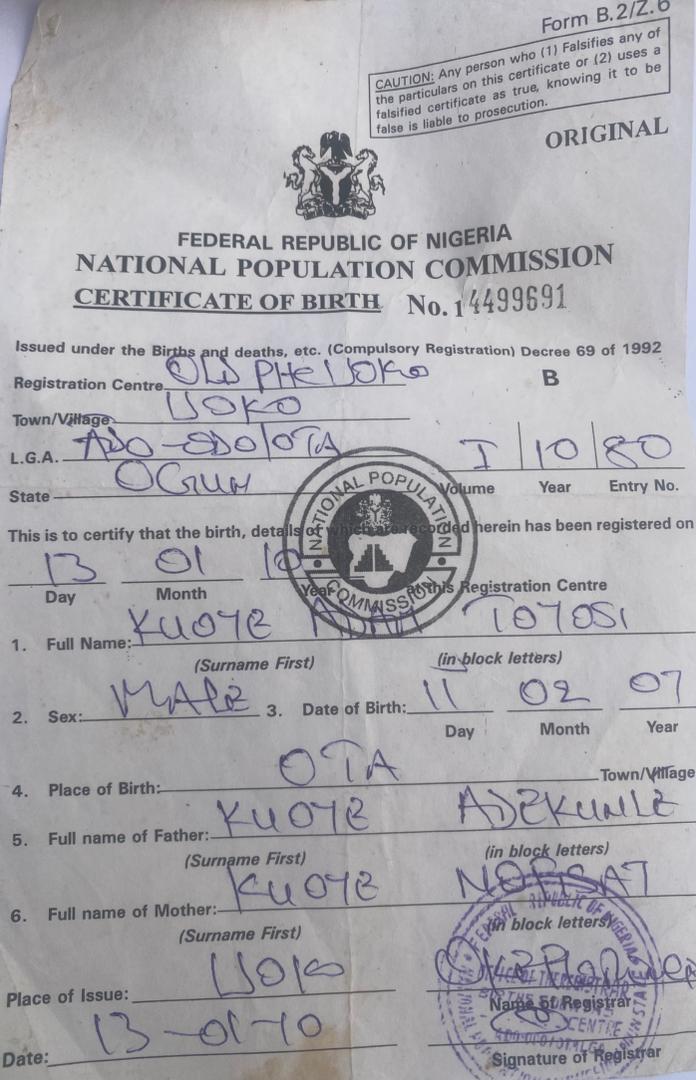 Form B.2/Z.6
CAUTION: Any person who (1) Falsifies any of
the particulars on this certificate or (2) uses a
falsified certificate as true, knowing it to be
false is liable to prosecution.
ORIGINAL
FEDERAL REPUBLIC OF NIGERIA
NATIONAL POPULATION COMMISSION
CERTIFICATE OF BIRTH No. 14499691
Issued under the Births and deaths, etc. (Compulsory Registration) Decree 69 of 1992
Registration Centre OLD PHC IJOKO B
Town/Village IJOKO
L.G.A. ADO-ODO/OTA I 10 80
State OGUN Volume Year Entry No.
NATIONAL POPULATION COMMISSION
This is to certify that the birth, details of which are recorded herein has been registered on
13 01 10
Day Month Year at this Registration Centre
1. Full Name: KUOYE TOYOSI
(Surname First) (in block letters)
2. Sex: MALE 3. Date of Birth: 11 02 07
Day Month Year
4. Place of Birth: OTA Town/Village
5. Full name of Father: KUOYE ADEKUNLE
(Surname First) (in block letters)
6. Full name of Mother: KUOYE
(Surname First) (in block letters)
Place of Issue: IJOKO
Name of Registrar
Date: 13-01-10
Signature of Registrar
FEDERAL REPUBLIC OF NIGERIA